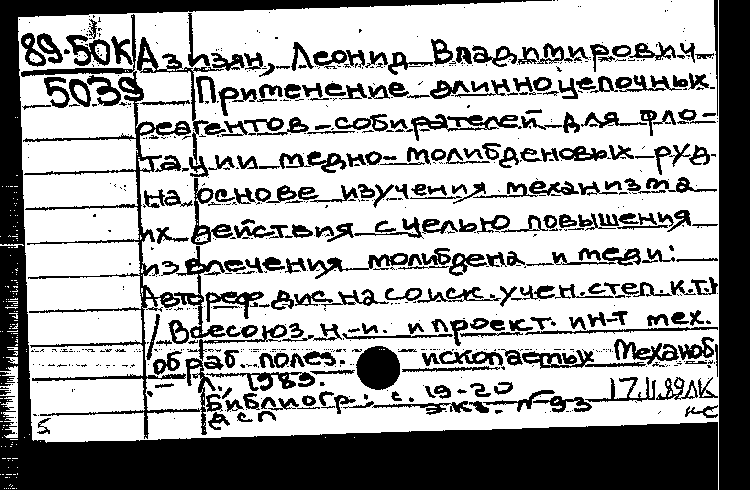 89-50К Азизян, Леонид Владимирович
5039 Применение длинноцепочных
реагентов-собирателей для фло-
тации медно-молибденовых руд
на основе изучения механизма
их действия с целью повышения
извлечения молибдена и меди:
Автореф. дис. на соиск. учен. степ. к.т.н
/ Всесоюз. н.-и. и проект. ин-т мех.
обраб. полез. ископаемых Механоб
.- Л., 1989.
Библиогр.: с. 19-20 17.11.89 ЛК
дсп экз. №93 нс
5.